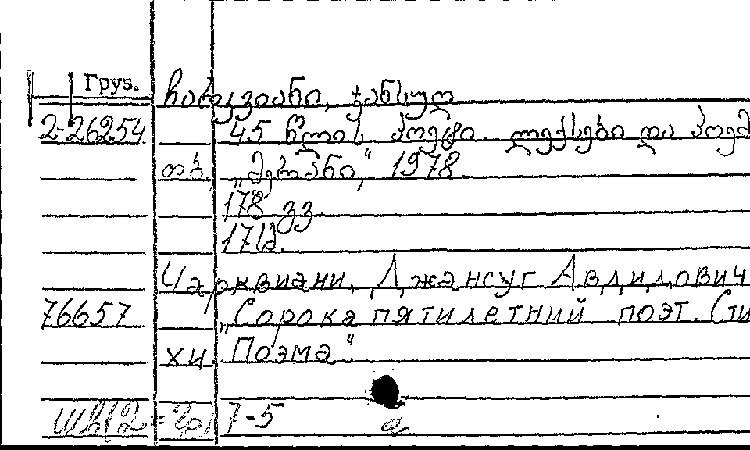 Груз.
ჩარკვიანი, ჯანსუღ
2-26254 45 წლის პოეტი. ლექსები და პოემ
თბ. „მერანი“, 1978.
178 გვ.
Чарквиани, Джансуг Авлилович
76657 „Сорока пятилетний поэт. Сти
хи. Поэма“
7-5